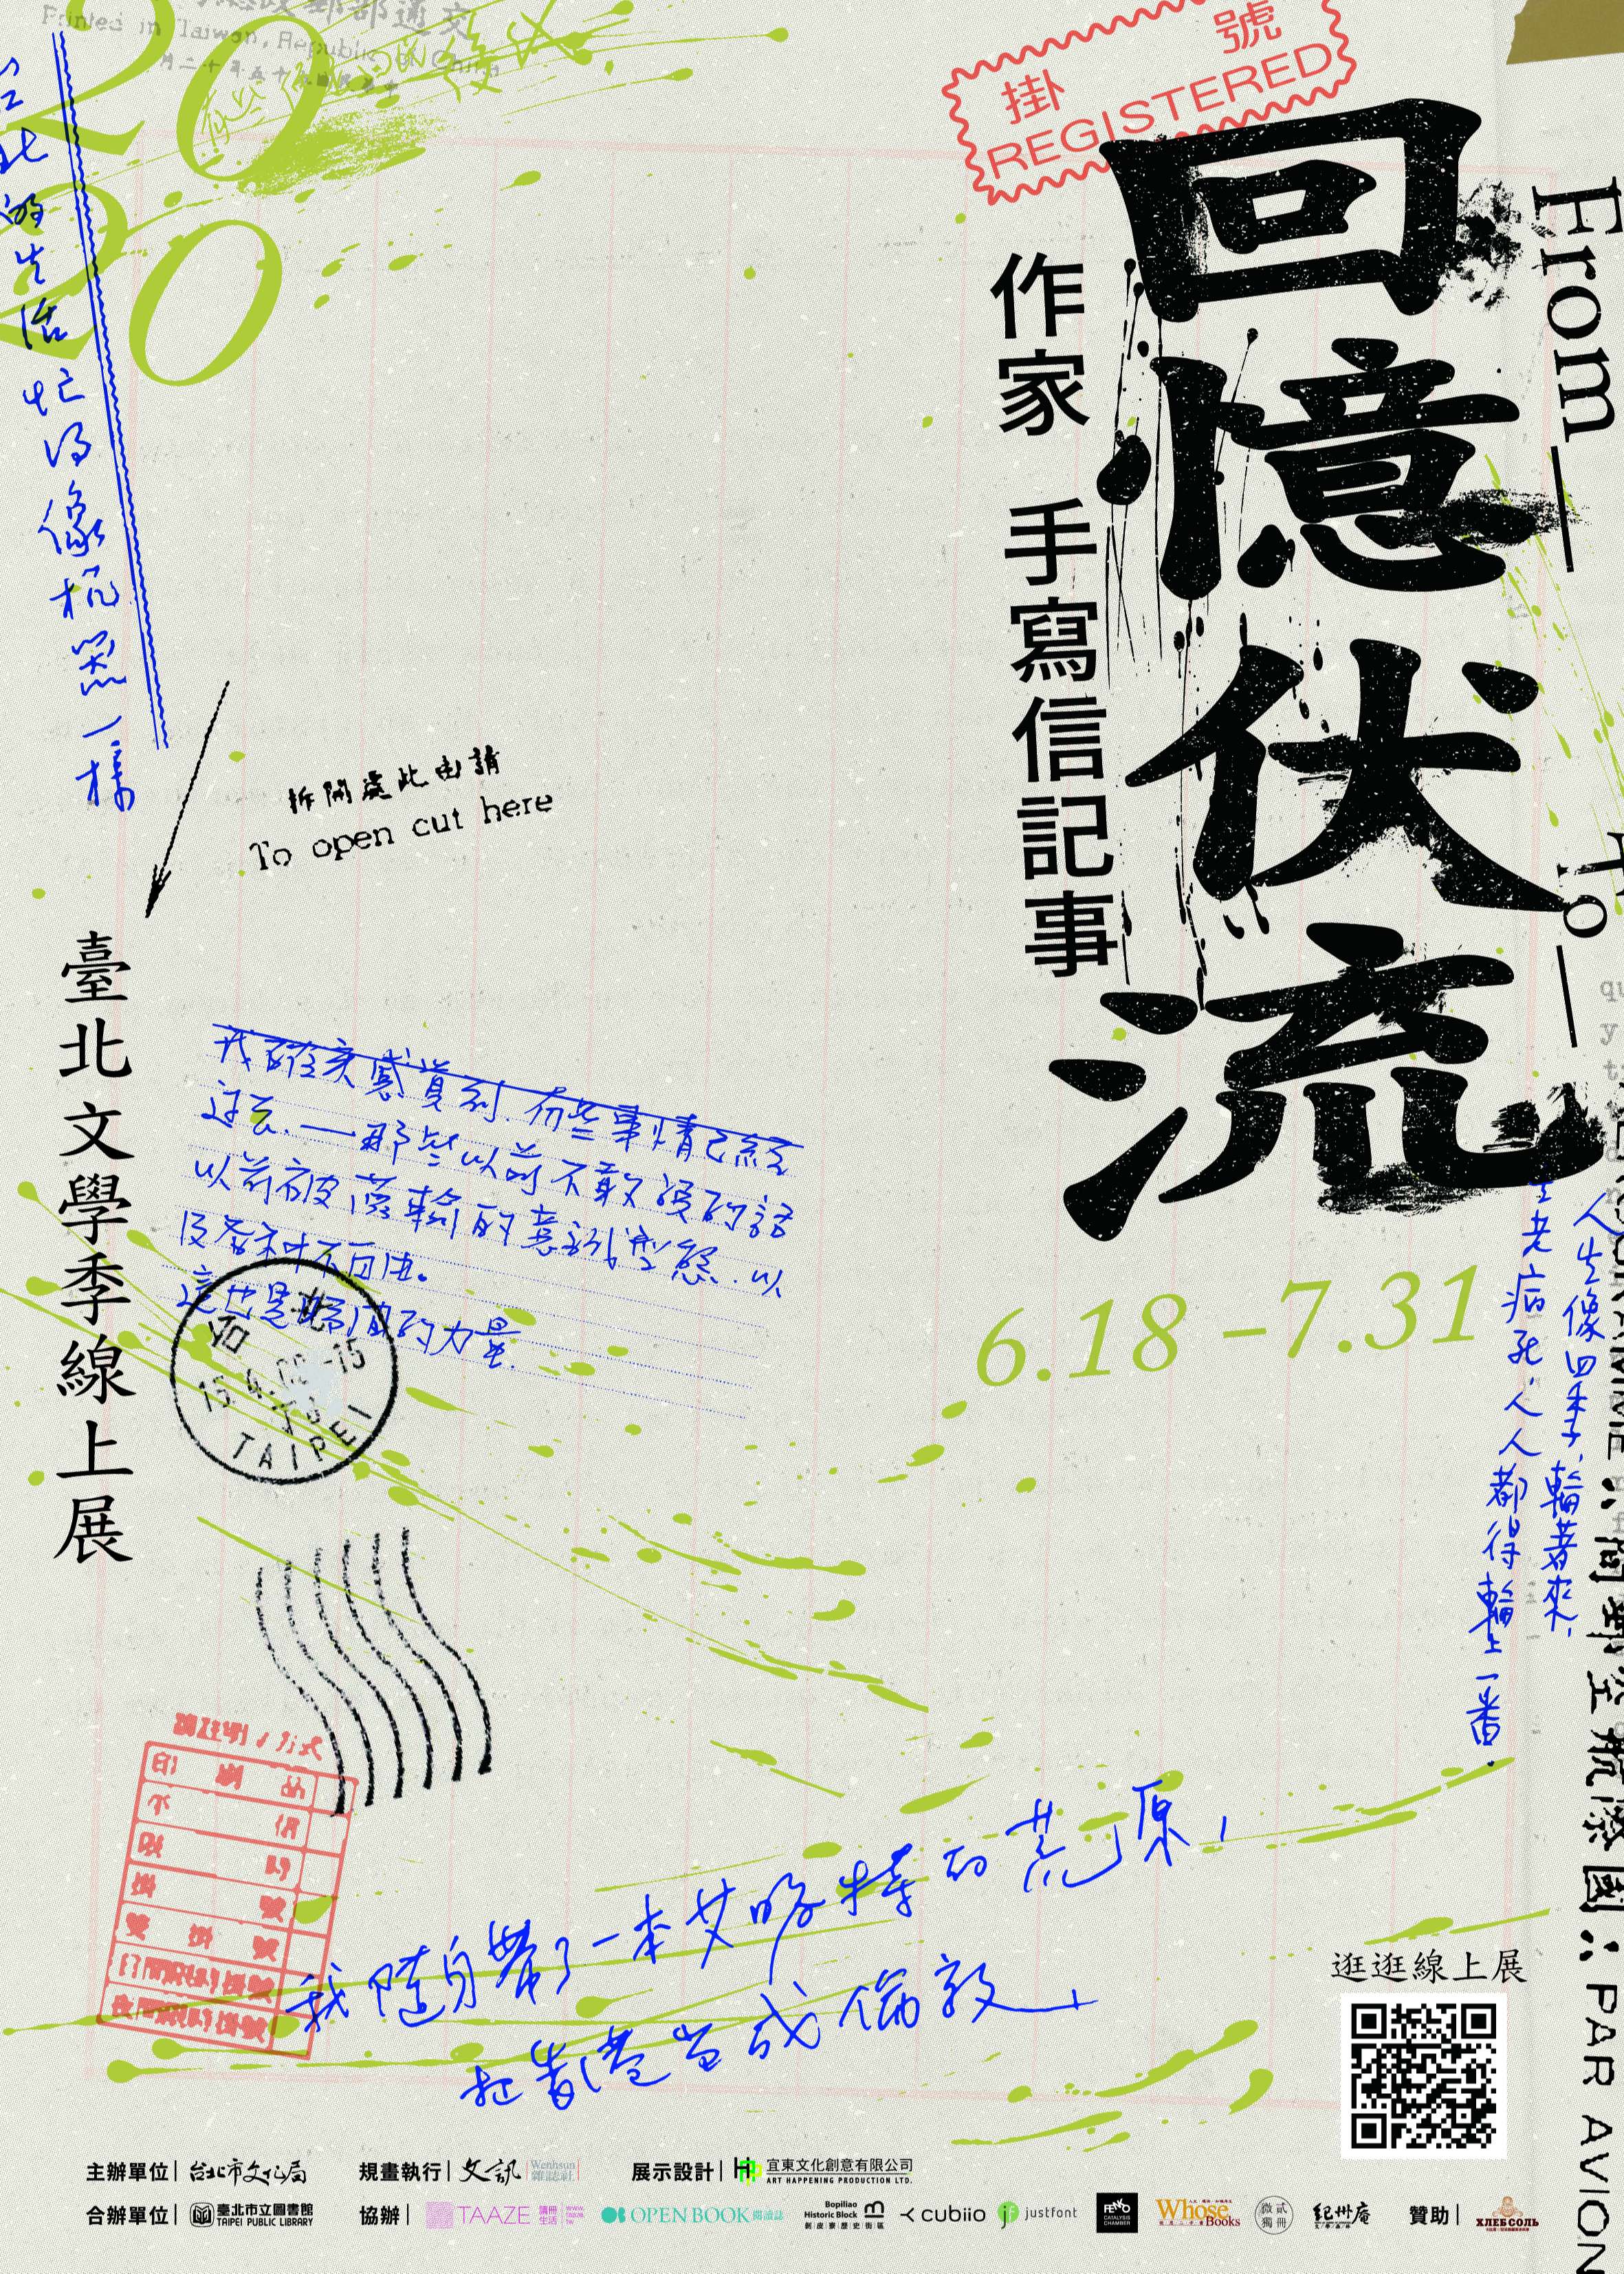 Printed in Taiwan, Republic of China
20
20
掛 號
REGISTERED
From
To
回憶伏流
作家 手寫信記事
台北的生活忙得像机器一樣
拆開處此由請
To open cut here
臺北文學季線上展
我確實感覺到.有些事情已經
过去.——那些以前不敢碰的話
以前被灌輸的意識型態.以
及各种不自由。
這也是時間的力量.
台北
TAIPEI
6.18–7.31
人生像四季,輪著來,
生老病死,人人都得輪上一番.
PAR AVION
我隨身帶了一本艾略特的荒原,
把香港当成倫敦
逛逛線上展
主辦單位 台北市文化局
規畫執行 文訊 Wenhsun 雜誌社
展示設計 宜東文化創意有限公司
ART HAPPENING PRODUCTION LTD.
合辦單位 臺北市立圖書館
TAIPEI PUBLIC LIBRARY
協辦 TAAZE 讀冊生活
OPEN BOOK 閱讀誌
Bopiliao Historic Block
剝皮寮歷史街區
cubiio
justfont
CATALYSIS CHAMBER
Whose Books
微貳獨冊
紀州庵
贊助 ХЛЕБСОЛЬ